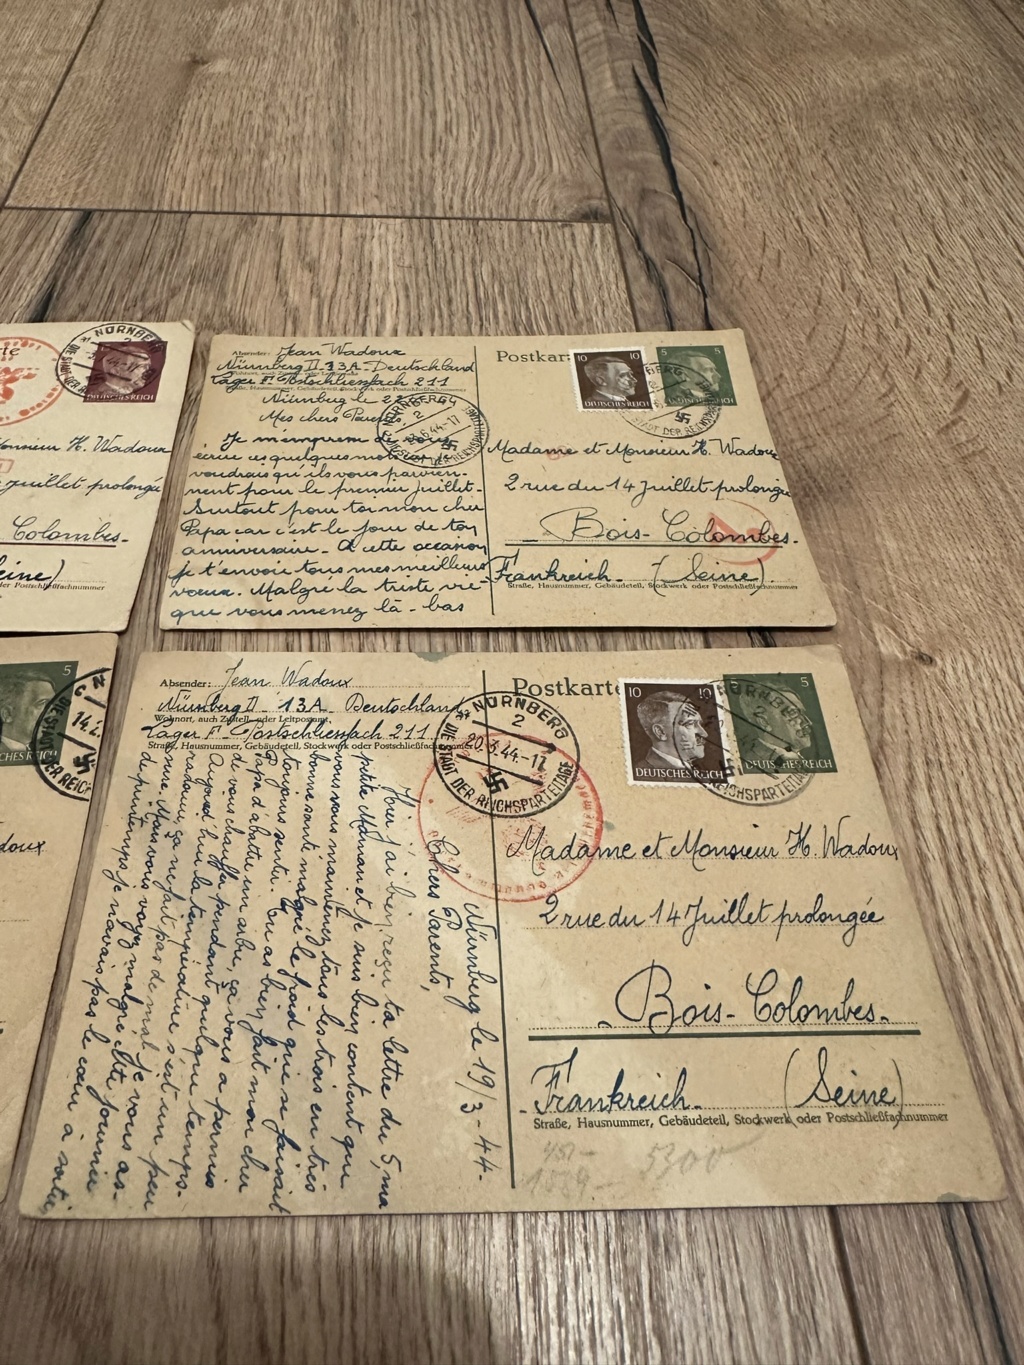 NÜRNBERG
2
DEUTSCHES REICH
Monsieur H. Wadoux
juillet prolongé
Colombes-
Absender: Jean Wadoux
Nürnberg II-13A-Deutschland
Wohnort, auch Zustell- oder Leitpostamt
Lager F. Postschliessfach 211
Straße, Hausnummer, Gebäudeteil, Stockwerk oder Postschließfachnummer
Nürnberg le 22
Mes chers Parents,
Je m'empresse de vous
écrire ces quelques mots
voudrais qu'ils vous parvien-
nent pour le premier juillet-
Surtout pour toi mon cher
Papa car c'est le jour de ton
anniversaire- A cette occasion
je t'envoie tous mes meilleurs
vœux. Malgré la triste vie
que vous menez là-bas
NÜRNBERG
2
6.44-17
Postkar
10 10
DEUTSCHES REICH
5 5
DEUTSCHES REICH
STADT DER REICHSPARTEITAGE
Madame et Monsieur H. Wadoux
2 rue du 14 Juillet prolongée
Bois-Colombes-
Frankreich- (Seine).
Straße, Hausnummer, Gebäudeteil, Stockwerk oder Postschließfachnummer
5
14.2.
Absender: Jean Wadoux
Nürnberg II 13A. Deutschland
Wohnort, auch Zustell- oder Leitpostamt
Lager F. Postschliessfach 211
Straße, Hausnummer, Gebäudeteil, Stockwerk oder Postschließfachnummer
Nürnberg le 19/3-44-
Chers Parents,
Hier j'ai bien reçu ta lettre du 5, ma
petite Maman et je suis bien content que
vous vous mainteniez tous les trois en très
bonne santé malgré le froid qui se faisait
toujours sentir. Tu as bien fait mon cher
Papa d'abattre un arbre, ça vous a permis
de vous chauffer pendant quelque temps-
Aujourd'hui la température s'est un peu
radoucie, ça ne fait pas de mal, je vous as-
sure. Mais vous voyez malgré cette journée
de printemps je n'avais pas le cœur à sortir
NÜRNBERG
2
20.3.44.-17
DIE STADT DER REICHSPARTEITAGE
Postkarte
10 10
DEUTSCHES REICH
5
DEUTSCHES REICH
NÜRNBERG
REICHSPARTEITAGE
Madame et Monsieur H. Wadoux
2 rue du 14 Juillet prolongée
-Bois-Colombes-
-Frankreich- (Seine)
Straße, Hausnummer, Gebäudeteil, Stockwerk oder Postschließfachnummer
5300